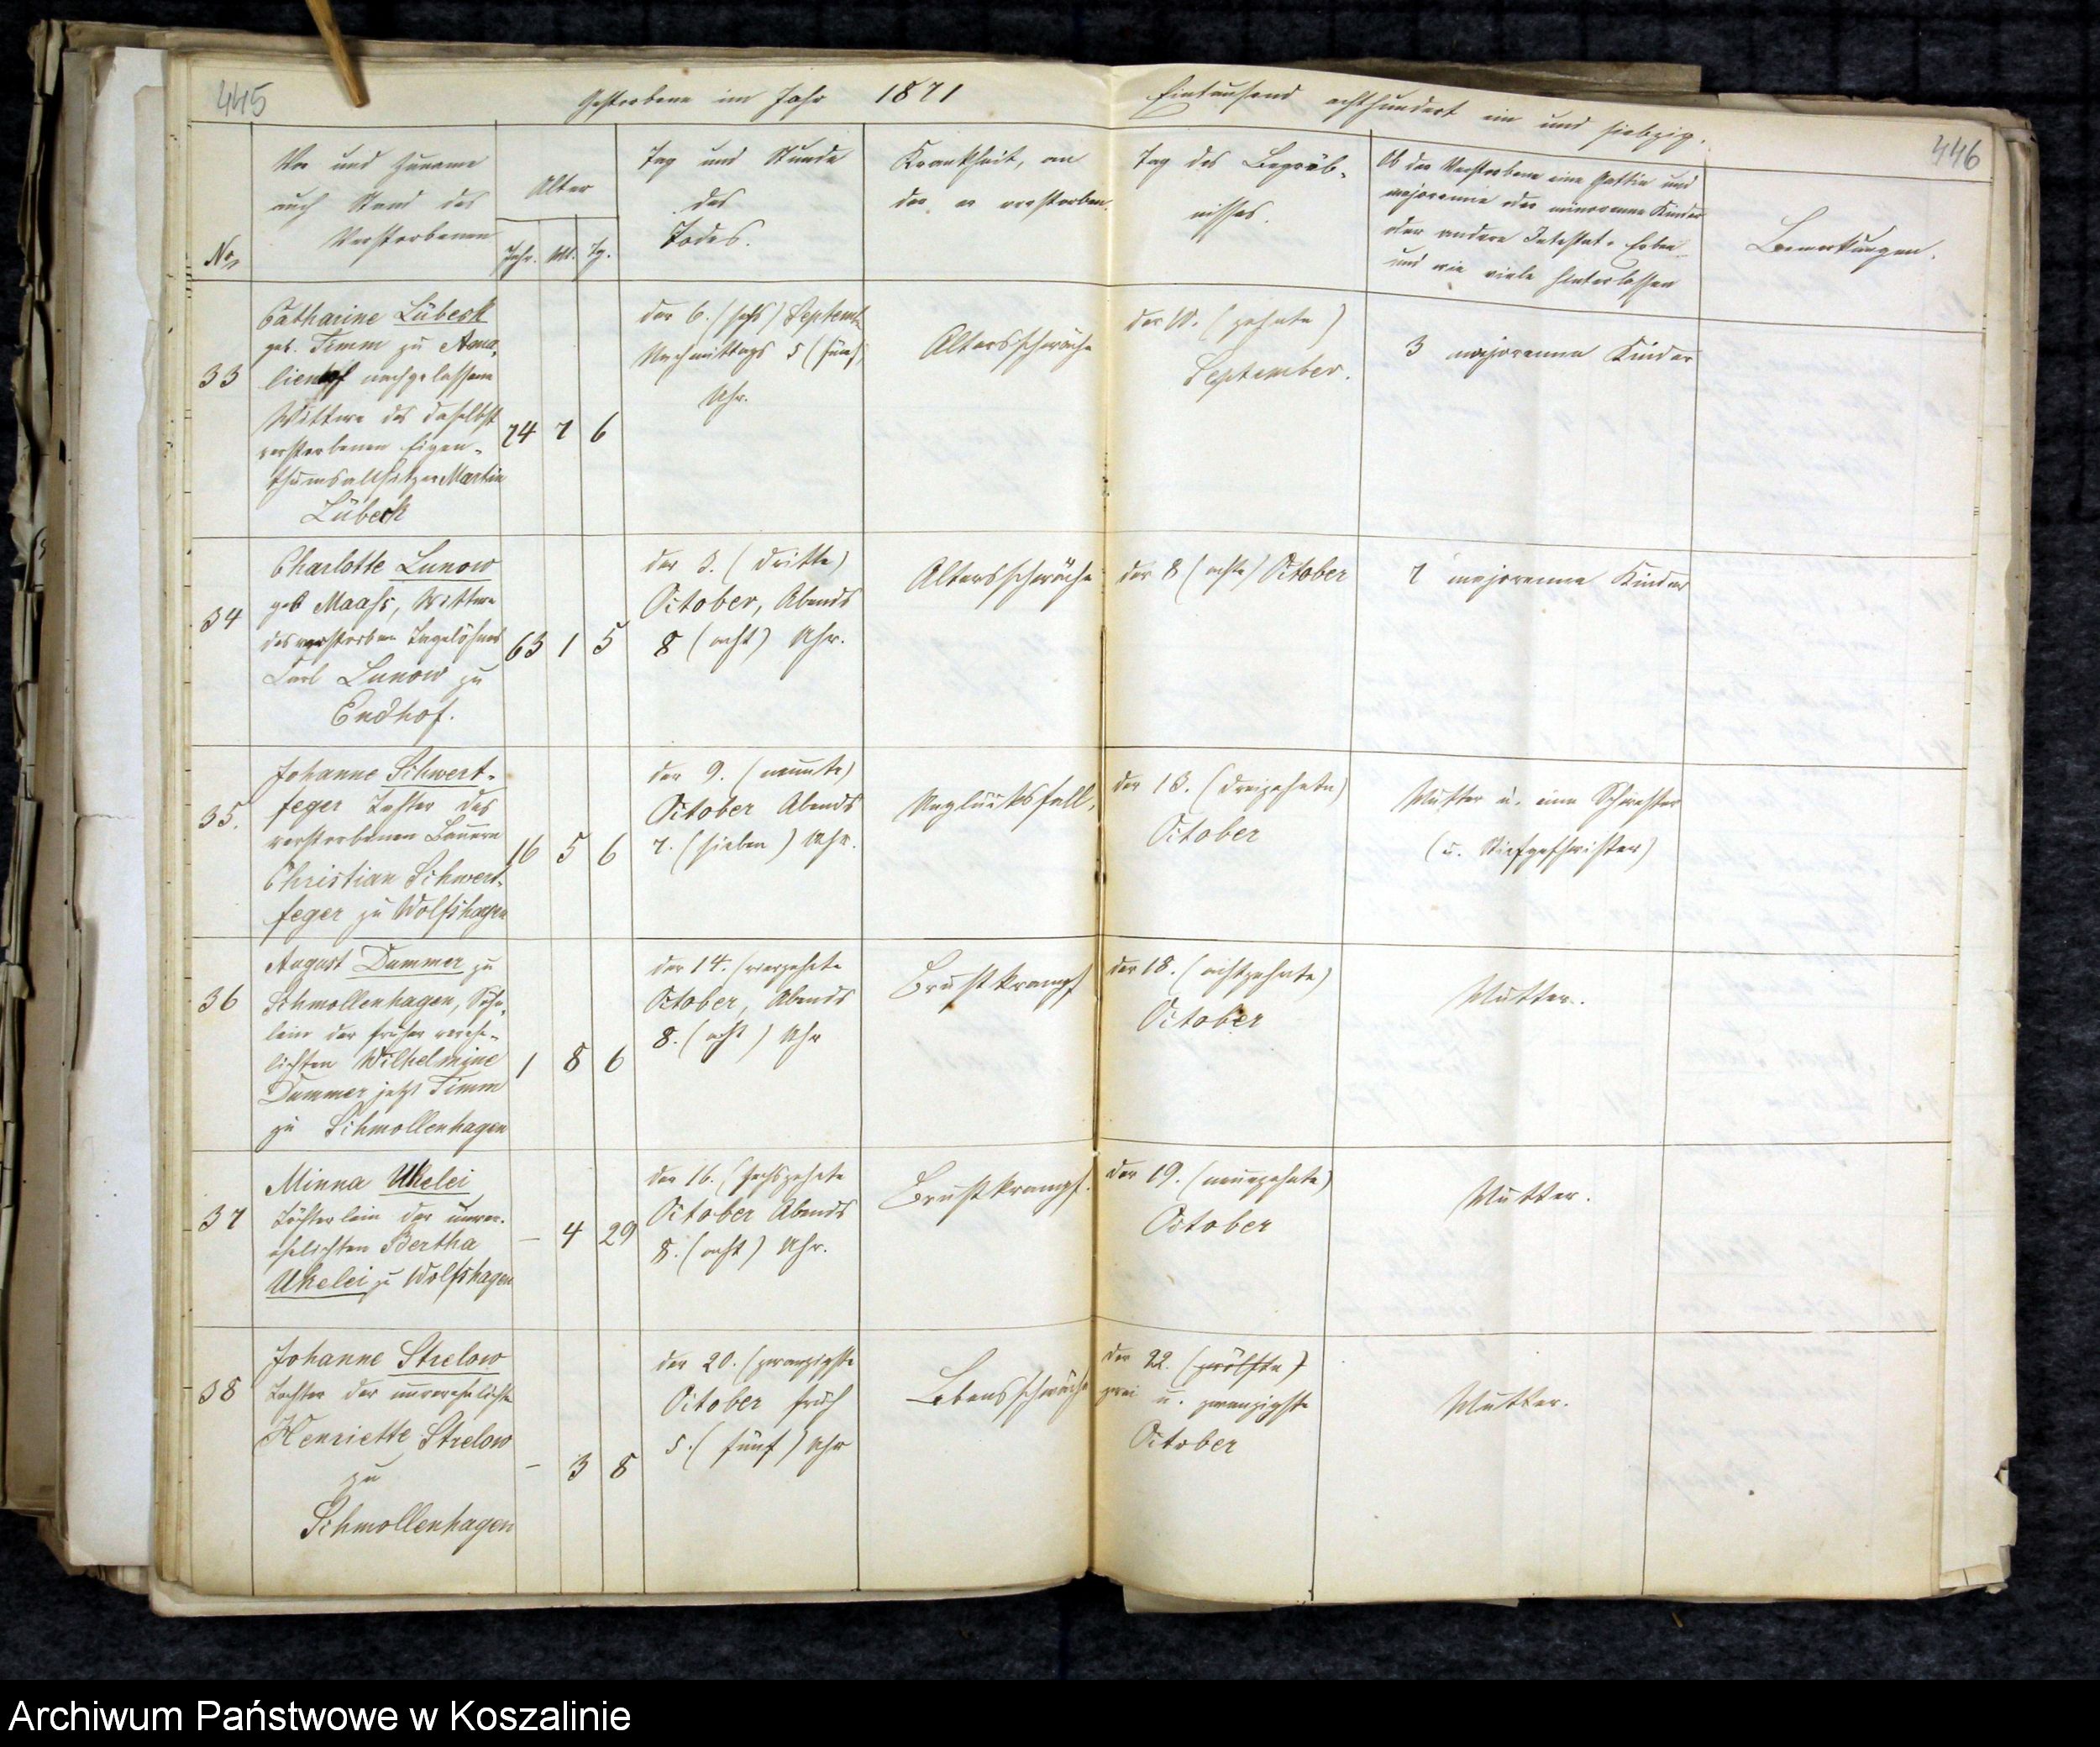 445
Gestorbene im Jahr 1871
Eintausend achthundert ein und siebzig.
446
No.
Vor und Zuname
auch Stand des
Verstorbenen
Alter
Jahr. M. Tg.
Tag und Stunde
des
Todes.
Krankheit, an
der er verstorben.
Tag des Begräb-
nisses.
Ob der Verstorbene eine Gattin und
majorenne oder minorenne Kinder
oder andere Intestat-Erben
und wie viele hinterlassen
Bemerkungen.
33
Catharine Lübeck
geb. Timm zu Ama-
lienhof nachgelassene
Wittwe des daselbst
verstorbenen Eigen-
thumsaltsitzer Martin
Lübeck
74 7 6
der 6. (sechs) Septemb.
Nachmittags 5 (fünf)
Uhr.
Altersschwäche
der 10. (zehnte)
September.
3 majorenne Kinder
34
Charlotte Lunow
geb Maaß, Wittwe
des verstorben Tagelöhners
Carl Lunow zu
Endhof.
63 1 5
der 3. (dritte)
October, Abends
8 (acht) Uhr.
Altersschwäche
der 8 (achte) October
7 majorenne Kinder
35.
Johanne Schwert-
feger Tochter des
verstorbenen Bauern
Christian Schwert-
feger zu Wolfshagen
16 5 6
der 9. (neunte)
October Abends
7. (sieben) Uhr.
Unglücksfall.
der 13. (dreizehnte)
October
Mutter u. eine Schwester
(u. Stiefgeschwister)
36
August Dummer zu
Schmollenhagen, Söhn-
lein der früher verehe-
lichten Wilhelmine
Dummer jetzt Timm
zu Schmollenhagen
1 8 6
der 14. (vierzehnte
October, Abends
8. (acht) Uhr
Brustkrampf
der 18. (achtzehnte)
October
Mutter.
37
Minna Ukelei
Töchterlein der unver-
ehelichten Bertha
Ukelei zu Wolfshagen
— 4 29
der 16. (sechszehnte
October Abends
8. (acht) Uhr.
Brustkrampf.
der 19. (neunzehnte)
October
Mutter.
38
Johanne Strelow
Tochter der unverehelichte
Henriette Strelow
zu
Schmollenhagen
— 3 8
der 20. (zwanzigste
October früh
5. (fünf) Uhr
Lebensschwäche
der 22. (zwölfte)
zwei u. zwanzigste
October
Mutter.
Archiwum Państwowe w Koszalinie